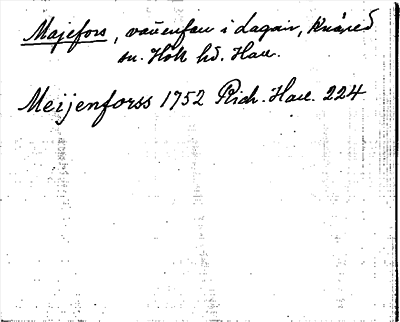 Majefors, vattenfall i Lagan, Knäred
sn. Hök hd. Hall.
Meijenforss 1752 Rich. Hall. 224